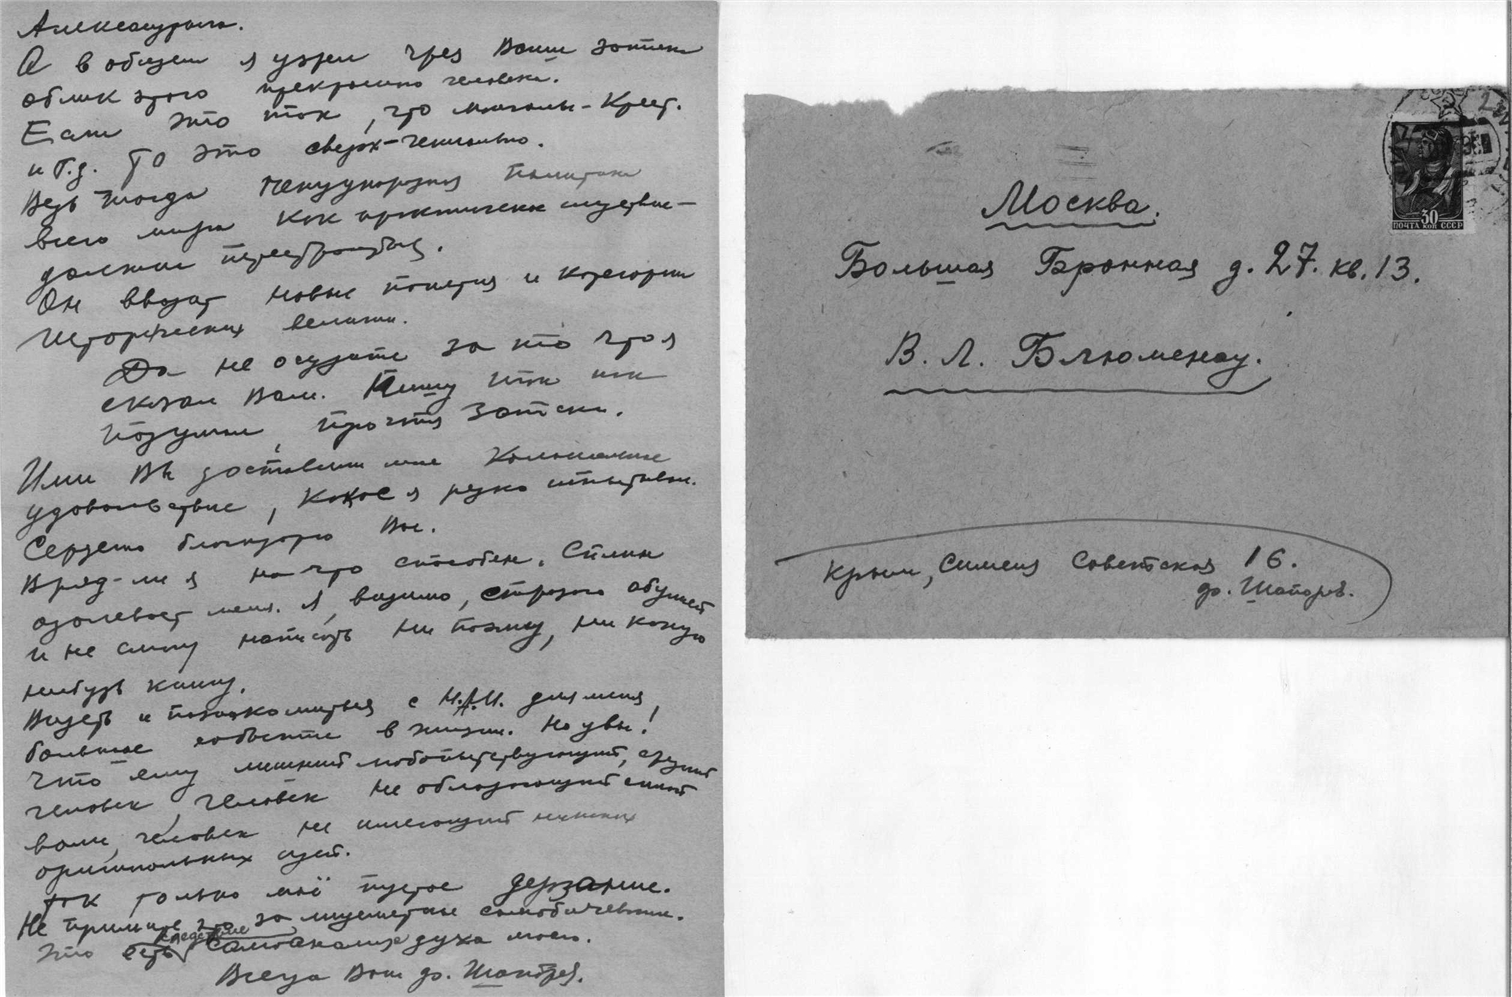 А в общем я узрел чрез Ваши записки
облик этого прекрасного человека.
Если это так, что
и т.д. то это сверх-гениально.
Ведь тогда
всего мира как
должны перестроиться.
Он вводит новые понятия и категории
исторических величин.
Да не осудите за то что я
сказал Вам. Пишу так как
подумал, прочтя записки.
Ими Вы доставили мне колоссальное
удовольствие, какое я редко испытывал.
Сердечно благодарю Вас.
Вряд-ли я на что способен. Сплин
одолевает меня. Я, видимо,
и не смогу написать ни поэму, ни какую
нибудь книгу.
Видеть и познакомиться с Н.А.И. для меня,
большое событие в жизни. Но увы!
Что ему лишний любопытствующий,
человек, человек не обладающий силой
воли, человек не имеющий никаких
оригинальных идей.
так только моё пустое дерзание.
Не примите это за самобичевание.
Это следствие самоанализа духа моего.
Всегда Ваш до. Шапорев.
Москва.
Большая Бронная д. 27. кв. 13.
В. Л. Блюменау.
Крым, Симеиз Советская 16.
до. Шапорев.
30
ПОЧТА КОП СССР